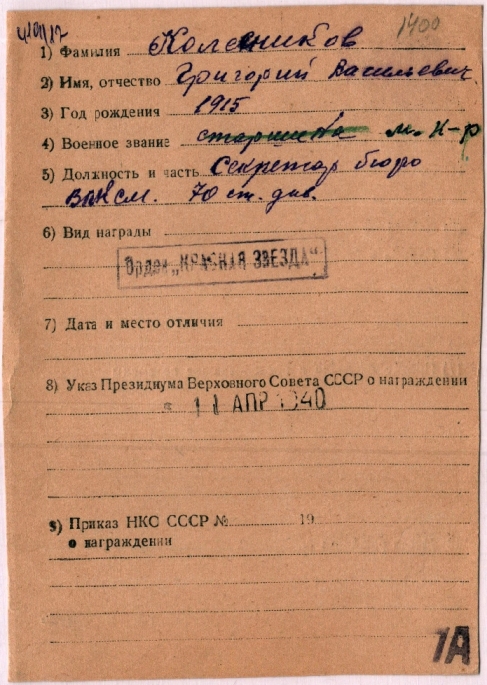 1400
1) Фамилия Колесников
2) Имя, отчество Григорий Васильевич.
3) Год рождения 1915
4) Военное звание старшина м. к-р
5) Должность и часть Секретар бюро
ВЛКСМ. 70 ст. див.
6) Вид награды
Орден „КРАСНАЯ ЗВЕЗДА"
7) Дата и место отличия
8) Указ Президиума Верховного Совета СССР о награждении
11 АПР 1940
9) Приказ НКС СССР № 19
о награждении
1А